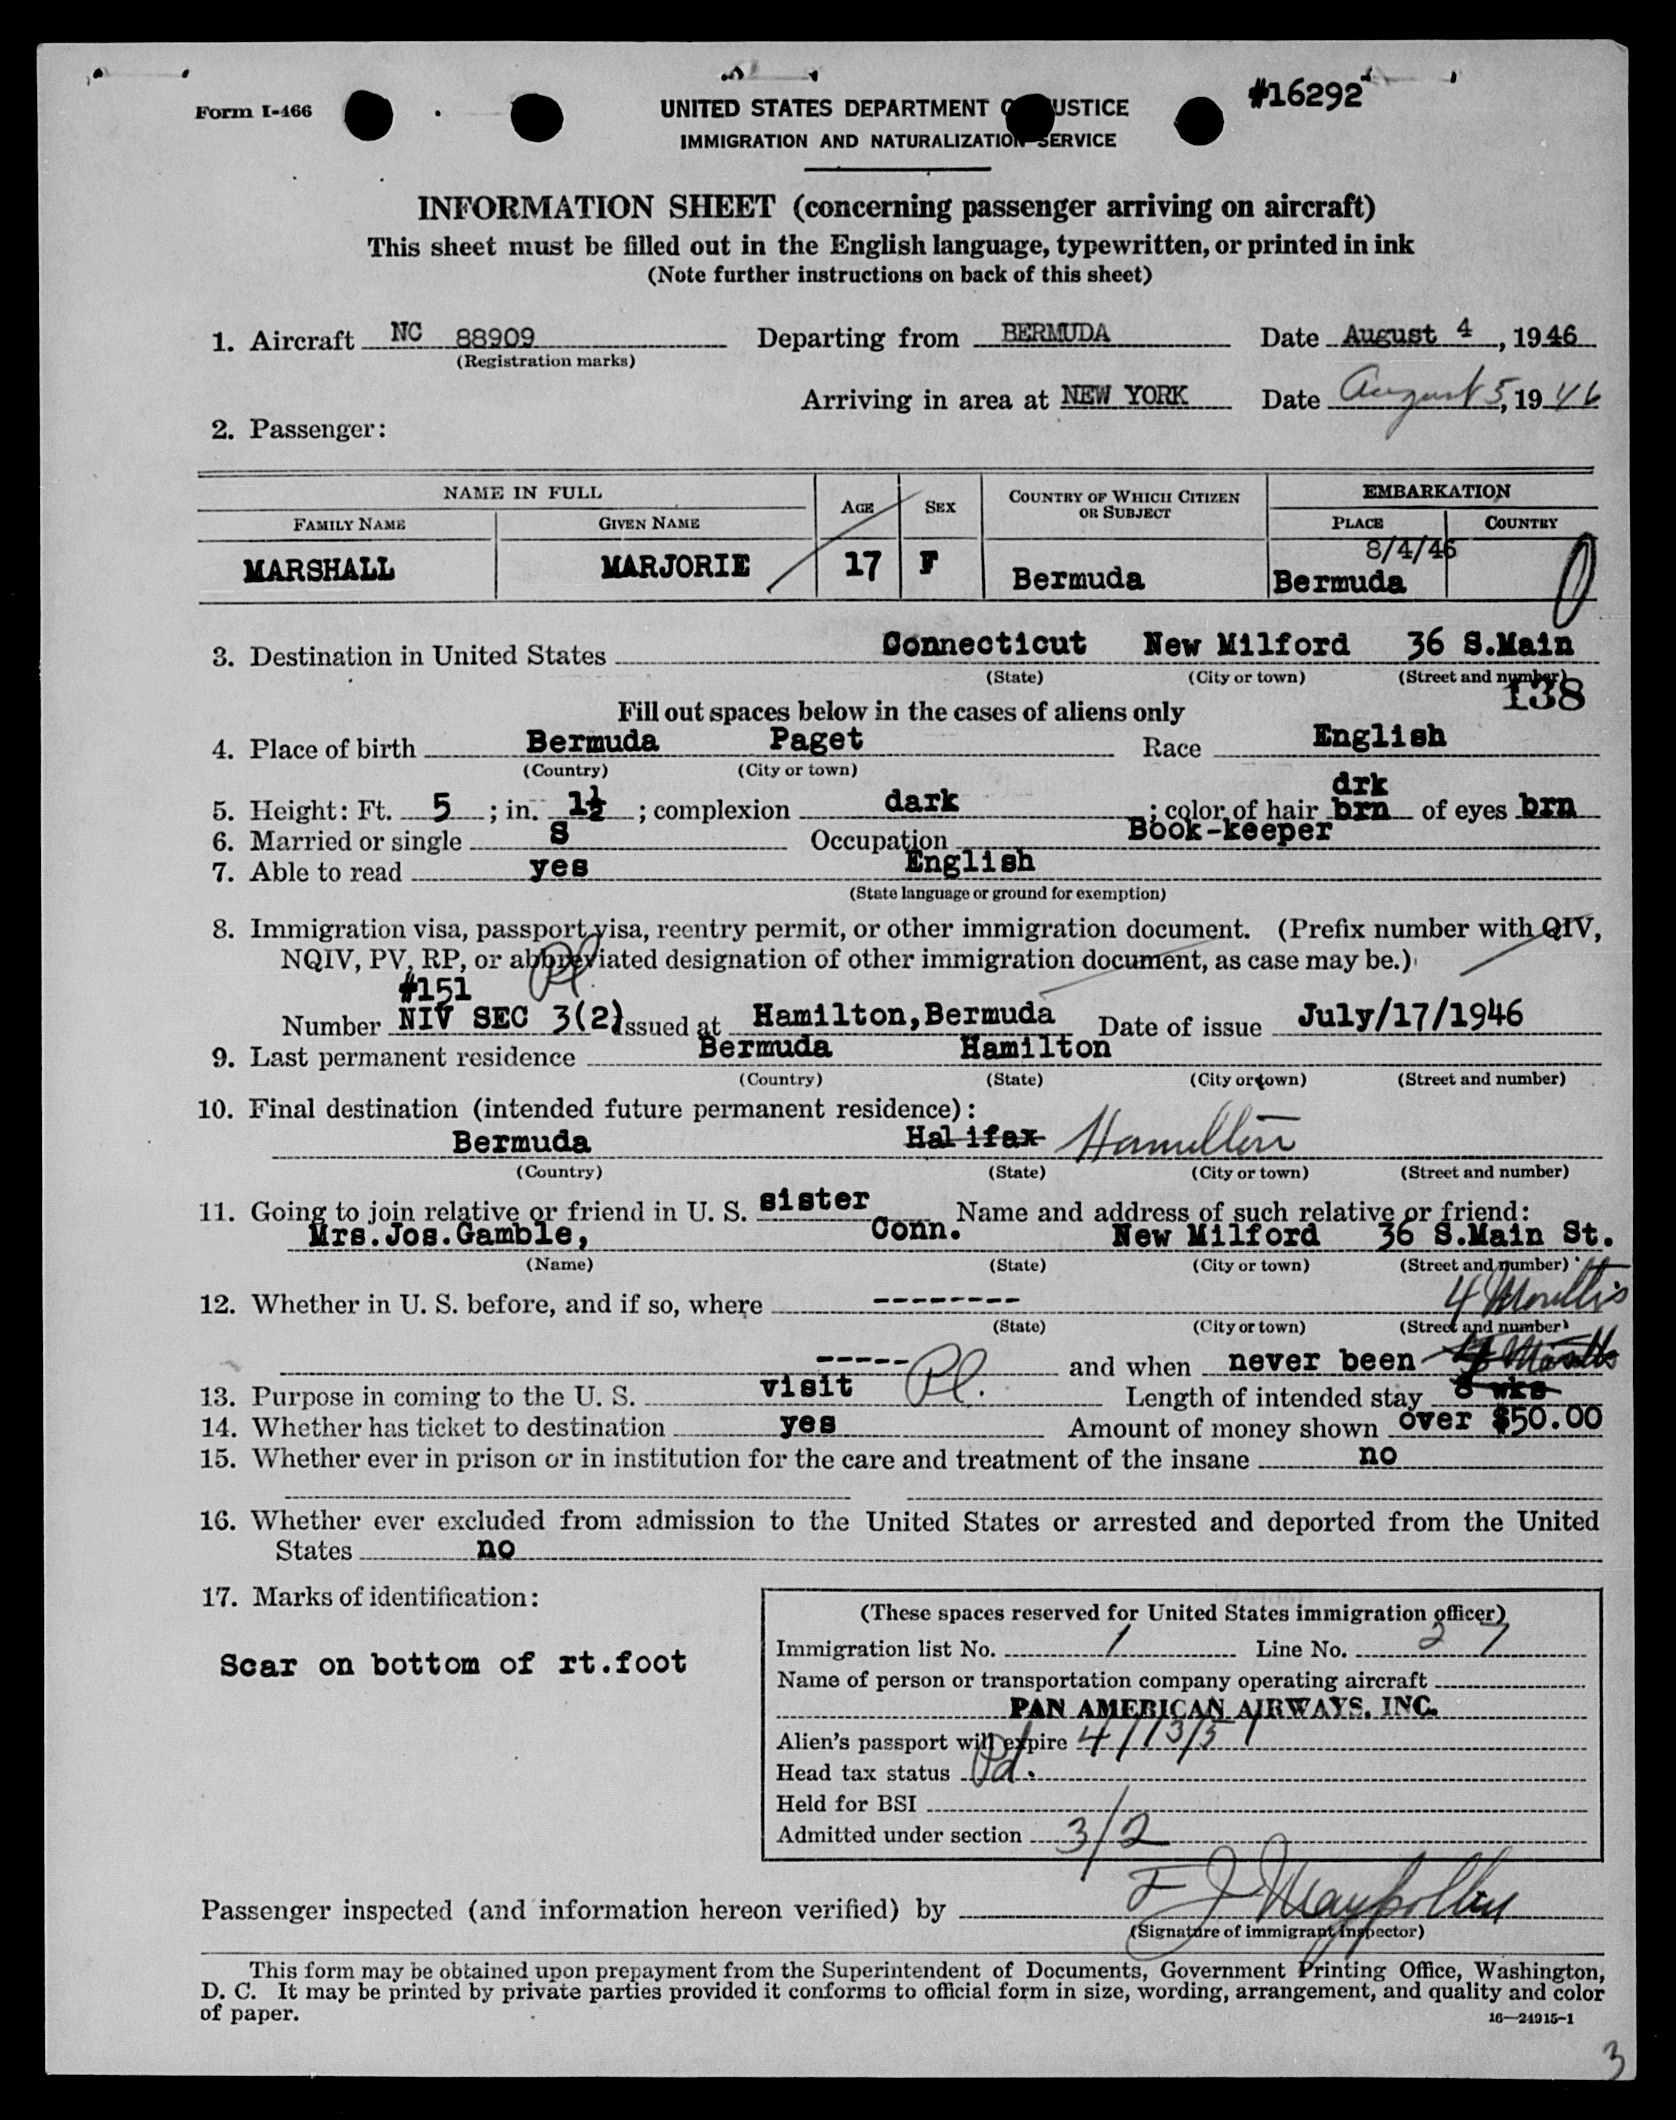 Form I-466
UNITED STATES DEPARTMENT OF JUSTICE
#16292
IMMIGRATION AND NATURALIZATION SERVICE
INFORMATION SHEET (concerning passenger arriving on aircraft)
This sheet must be filled out in the English language, typewritten, or printed in ink
(Note further instructions on back of this sheet)
1. Aircraft NC 88909 Departing from BERMUDA Date August 4, 1946
(Registration marks)
Arriving in area at NEW YORK Date August 5, 1946
2. Passenger:
NAME IN FULL AGE SEX COUNTRY OF WHICH CITIZEN OR SUBJECT EMBARKATION
FAMILY NAME GIVEN NAME PLACE COUNTRY
8/4/46
MARSHALL MARJORIE 17 F Bermuda Bermuda
3. Destination in United States Connecticut New Milford 36 S.Main
(State) (City or town) (Street and number)
138
Fill out spaces below in the cases of aliens only
4. Place of birth Bermuda Paget Race English
(Country) (City or town)
drk
5. Height: Ft. 5; in. 1½; complexion dark; color of hair brn of eyes brn
6. Married or single S Occupation Book-keeper
7. Able to read yes English
(State language or ground for exemption)
8. Immigration visa, passport visa, reentry permit, or other immigration document. (Prefix number with QIV,
NQIV, PV, RP, or abbreviated designation of other immigration document, as case may be.)
#151 Pl.
Number NIV SEC 3(2) Issued at Hamilton,Bermuda Date of issue July/17/1946
9. Last permanent residence Bermuda Hamilton
(Country) (State) (City or town) (Street and number)
10. Final destination (intended future permanent residence):
Bermuda Halifax Hamilton
(Country) (State) (City or town) (Street and number)
11. Going to join relative or friend in U. S. sister Name and address of such relative or friend:
Mrs.Jos.Gamble, Conn. New Milford 36 S.Main St.
(Name) (State) (City or town) (Street and number)
12. Whether in U. S. before, and if so, where -------- 4 Months
(State) (City or town) (Street and number)
----- Pl. and when never been
13. Purpose in coming to the U. S. visit Length of intended stay 8 wks
14. Whether has ticket to destination yes Amount of money shown over $50.00
15. Whether ever in prison or in institution for the care and treatment of the insane no
16. Whether ever excluded from admission to the United States or arrested and deported from the United
States no
17. Marks of identification:
Scar on bottom of rt.foot
(These spaces reserved for United States immigration officer)
Immigration list No. 1 Line No. 27
Name of person or transportation company operating aircraft
PAN AMERICAN AIRWAYS, INC.
Alien's passport will expire 4/13/51
Head tax status Pd.
Held for BSI
Admitted under section 3/2
Passenger inspected (and information hereon verified) by
(Signature of immigrant inspector)
This form may be obtained upon prepayment from the Superintendent of Documents, Government Printing Office, Washington,
D. C. It may be printed by private parties provided it conforms to official form in size, wording, arrangement, and quality and color
of paper.
16—24915-1
3